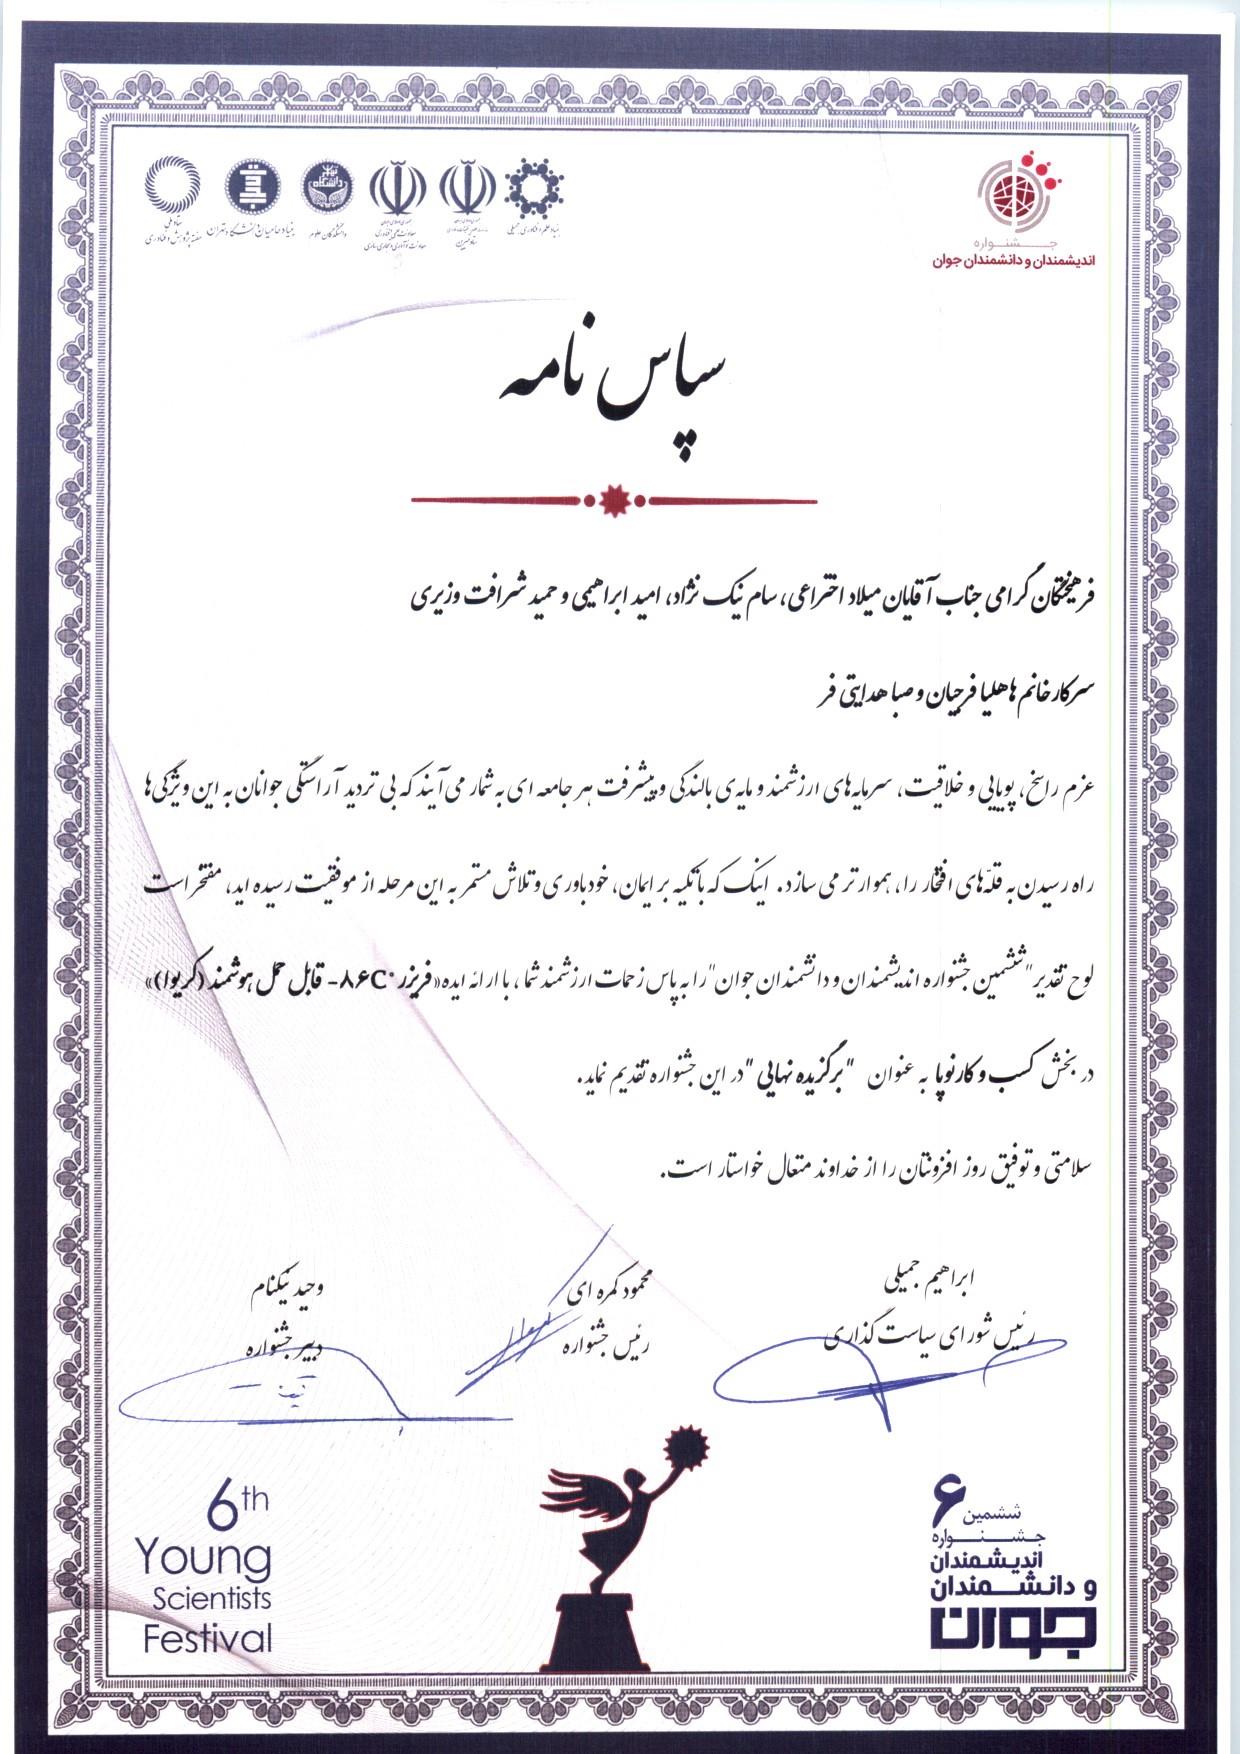 جشنواره
اندیشمندان و دانشمندان جوان
بنیاد علم و فناوری جمیلی
معاونت علمی فناوری
دانشکدگان علوم
بنیاد حامیان دانشگاه تهران
ستاد ملی
هفته پژوهش و فناوری
سپاس نامه
فرهیختگان گرامی جناب آقایان میلاد اختراعی، سام نیک نژاد، امید ابراهیمی و حمید شرافت وزیری
سرکار خانم ها هلیا فرجیان و صبا هدایتی فر
عزم راسخ، پویایی و خلاقیت، سرمایه‌های ارزشمند و مایه‌ی بالندگی و پیشرفت هر جامعه ای به شمار می آیند که بی تردید آراستگی جوانان به این ویژگی‌ها
راه رسیدن به قلّه‌های افتخار را، هموارتر می سازد. اینک که با تکیه بر ایمان، خودباوری و تلاش مستمر به این مرحله از موفقیت رسیده اید، مفتخر است
لوح تقدیر "ششمین جشنواره اندیشمندان و دانشمندان جوان" را به پاس زحمات ارزشمند شما، با ارائه ایده «فریزر ۸۶C°- قابل حمل هوشمند (کریوا)»
در بخش کسب و کار نوپا به عنوان "برگزیده نهایی" در این جشنواره تقدیم نماید.
سلامتی و توفیق روز افزونتان را از خداوند متعال خواستار است.
ابراهیم جمیلی
رئیس شورای سیاست گذاری
محمود کمره ای
رئیس جشنواره
وحید نیکنام
دبیر جشنواره
۶
ششمین
جشنواره
اندیشمندان
و دانشمندان
جوان
6th
Young
Scientists
Festival